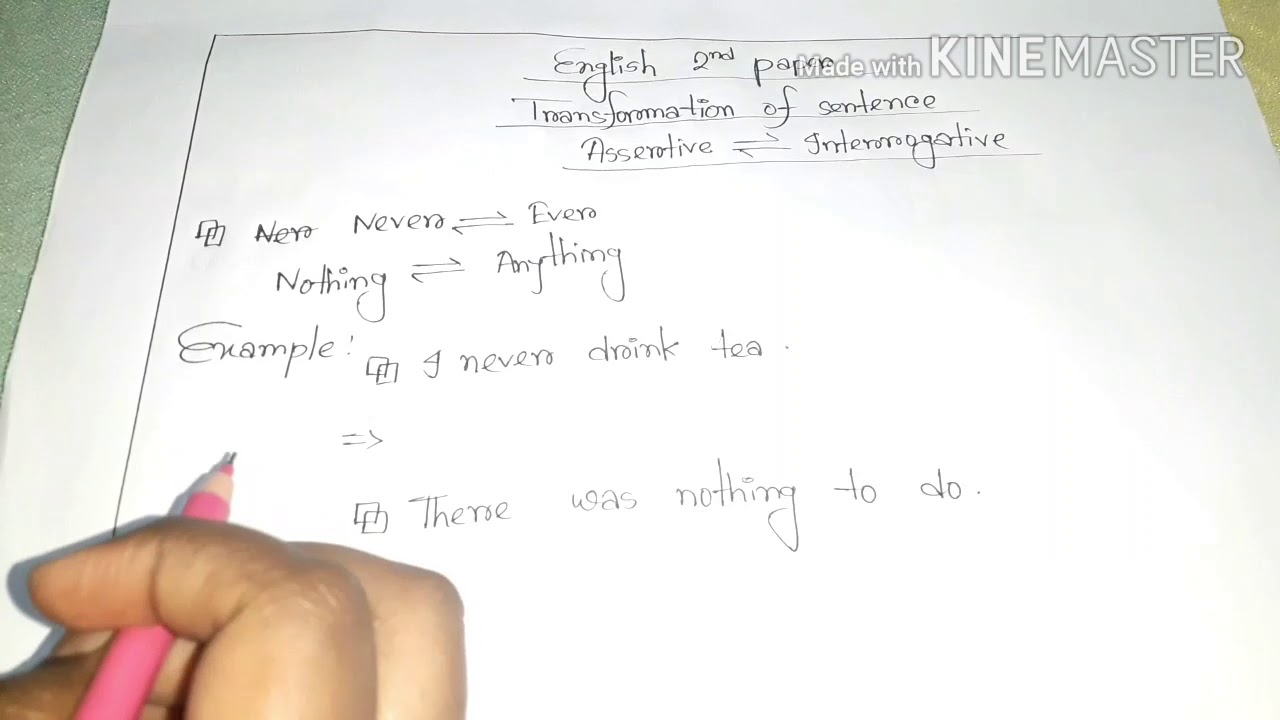 English 2nd paper
Made with KINEMASTER
Transformation of sentence
Assertive ⇌ Interrogative
Never ⇌ Ever
Nothing ⇌ Anything
Example: I never drink tea.
⇒
There was nothing to do.